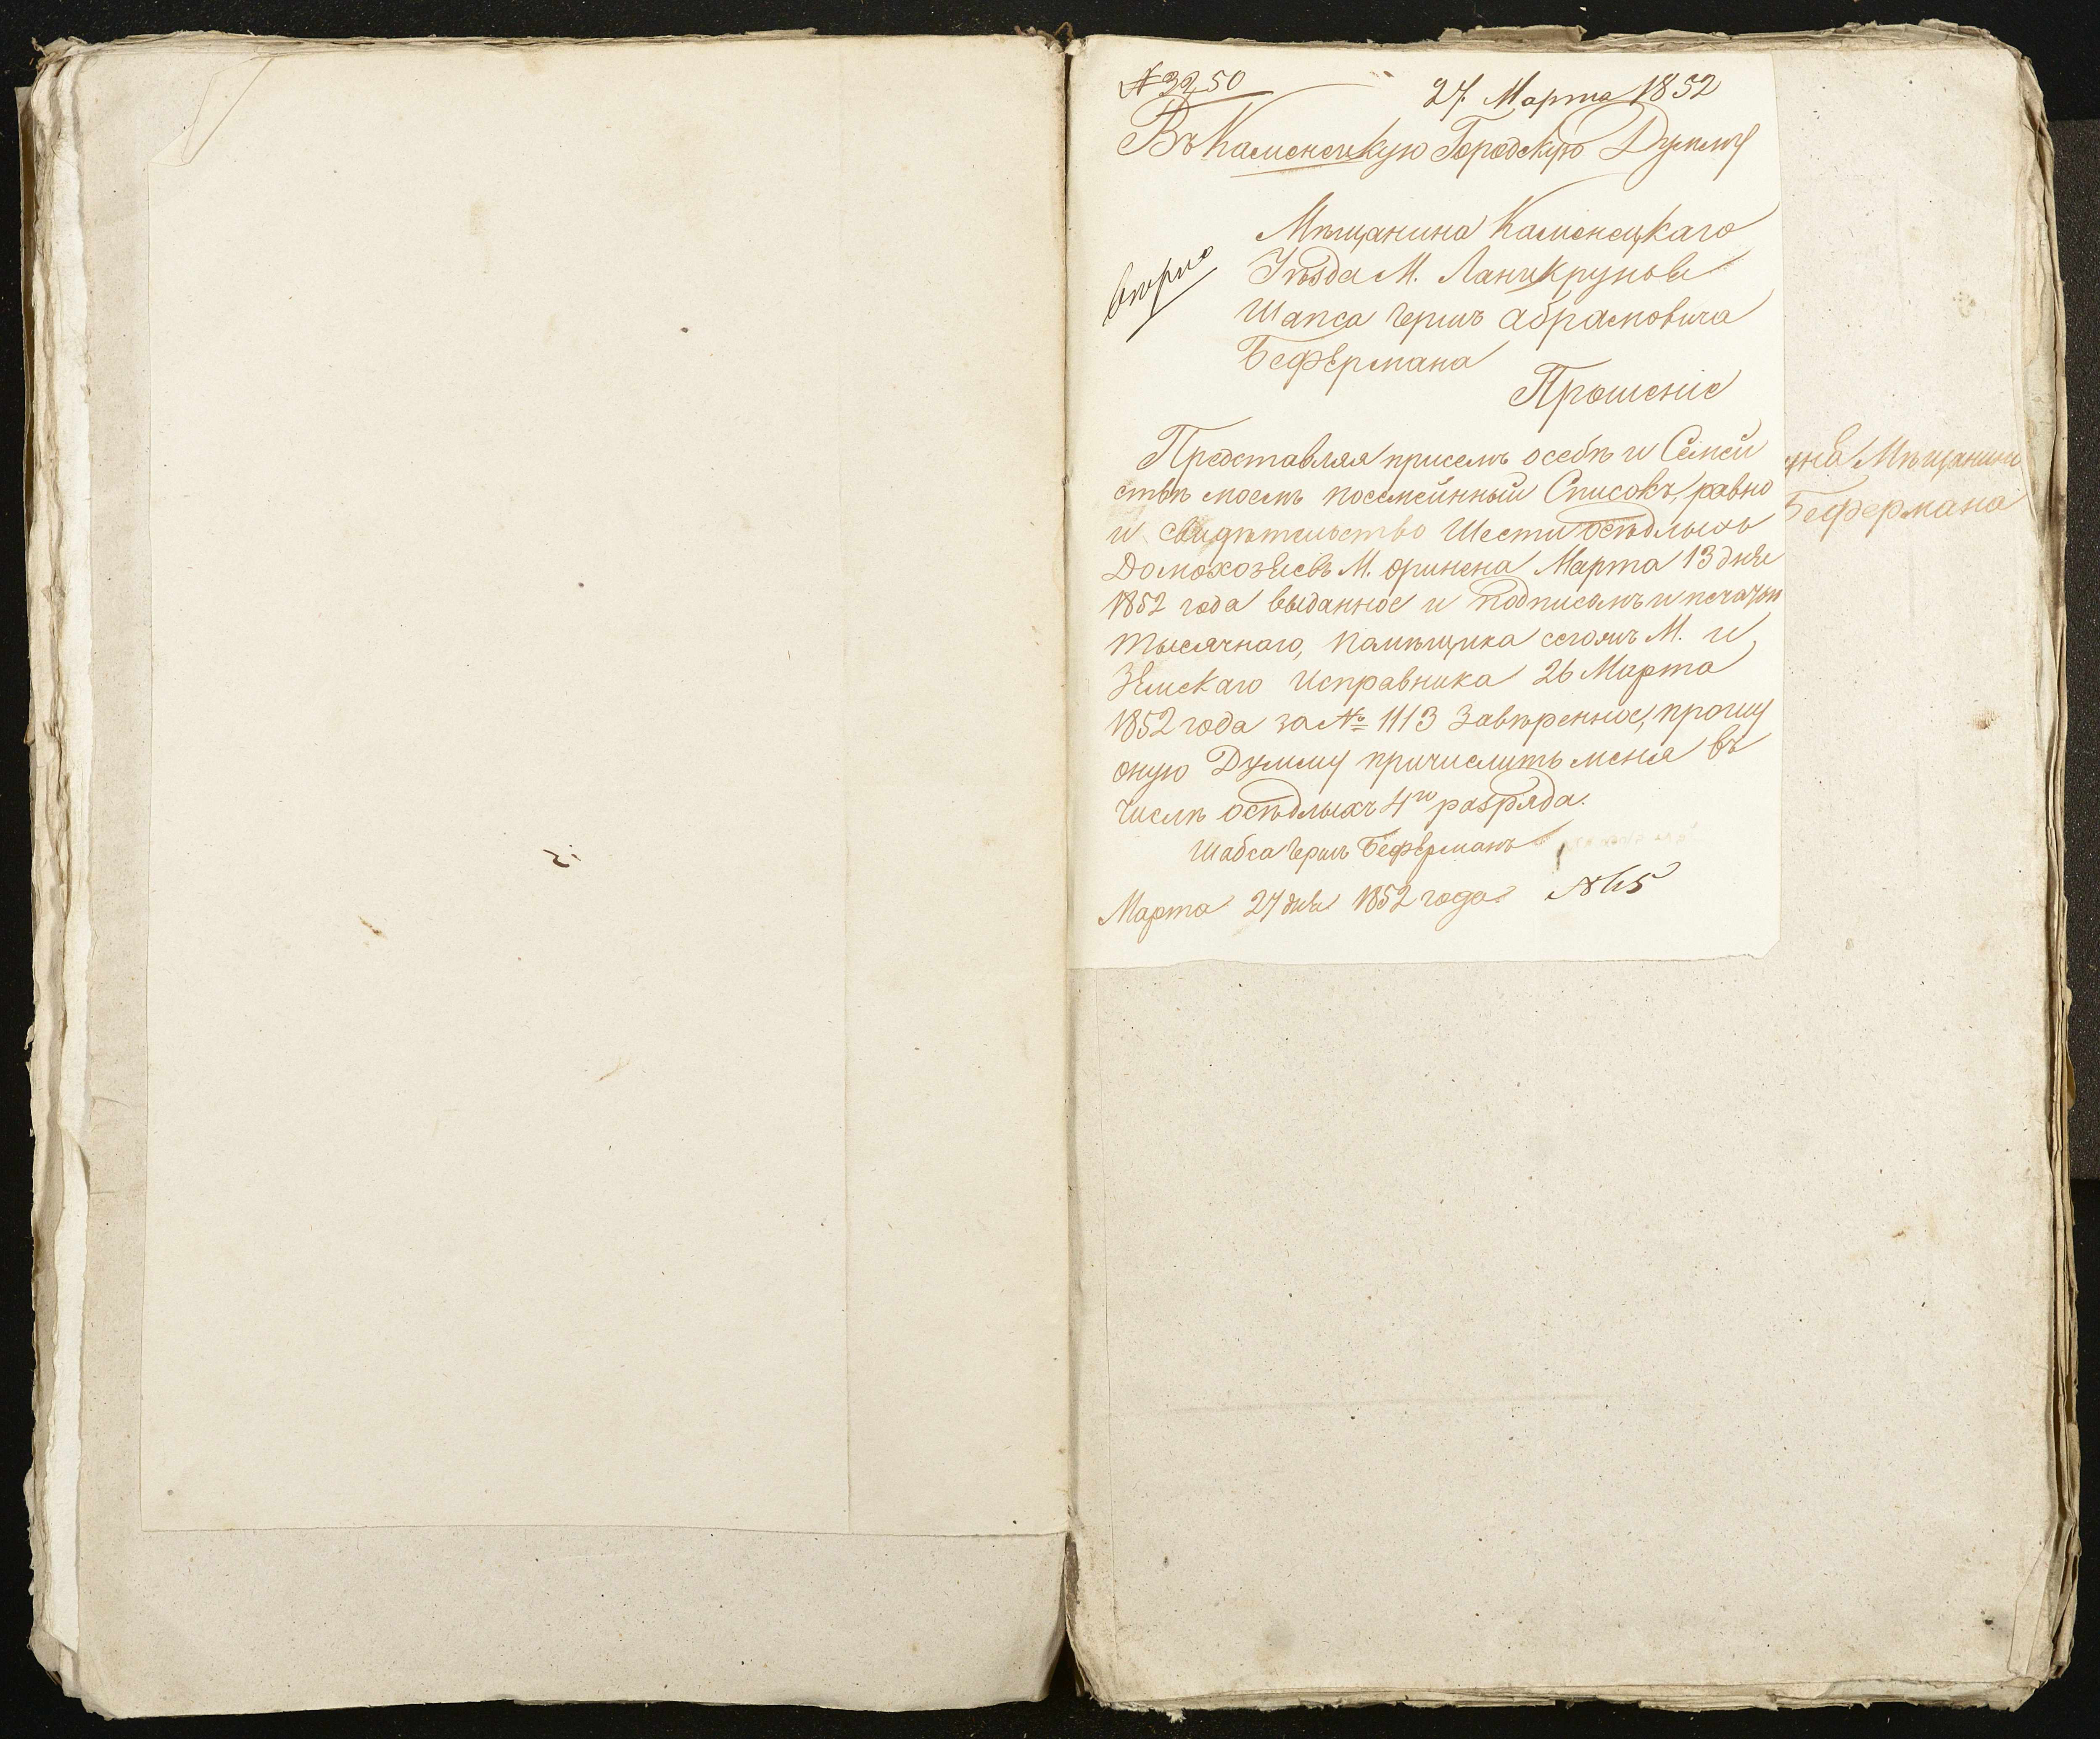 № 3250
27. Марта 1852
Въ Каменецкую Городскую Думму
Мѣщанина Каменецкаго
вѣрно
Уѣзда М. Ланцкрунов
Шапса Герша Абрамовича
Бефермана
Прошеніе
Представляя присемъ осебѣ и Семей
ствѣ моемъ посемейнный Списокъ, равно
и свидѣтельство Шести осѣдлыхъ
Домохозяевъ М. Оринена Марта 13 дня
1852 года выданное и подписомъ и печатью
тысячнаго, Памѣщика сегожъ М. и
Земскаго Исправника 26 Марта
1852 года за № 1113 Завѣренное, прошу
оную Думму причислить меня въ
числѣ осѣдлыхъ 4го разряда.
Шабса Гершъ Беферманъ
Марта 27 дня 1852 года № 65
Мѣщанина
Бефермана